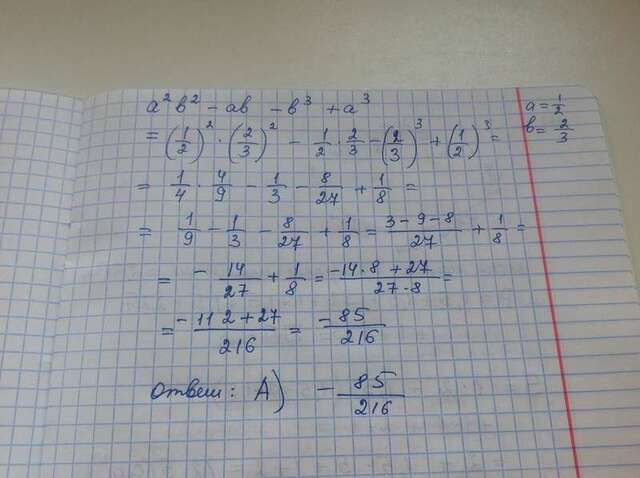 a² b² - ab - b³ + a³
a = 1/2
b = 2/3
= (1/2)² · (2/3)² - 1/2 · 2/3 - (2/3)³ + (1/2)³ =
= 1/4 · 4/9 - 1/3 - 8/27 + 1/8 =
= 1/9 - 1/3 - 8/27 + 1/8 = (3 - 9 - 8)/27 + 1/8 =
= - 14/27 + 1/8 = (-14·8 + 27)/(27·8) =
= (-112 + 27)/216 = -85/216
Ответ: А) - 85/216